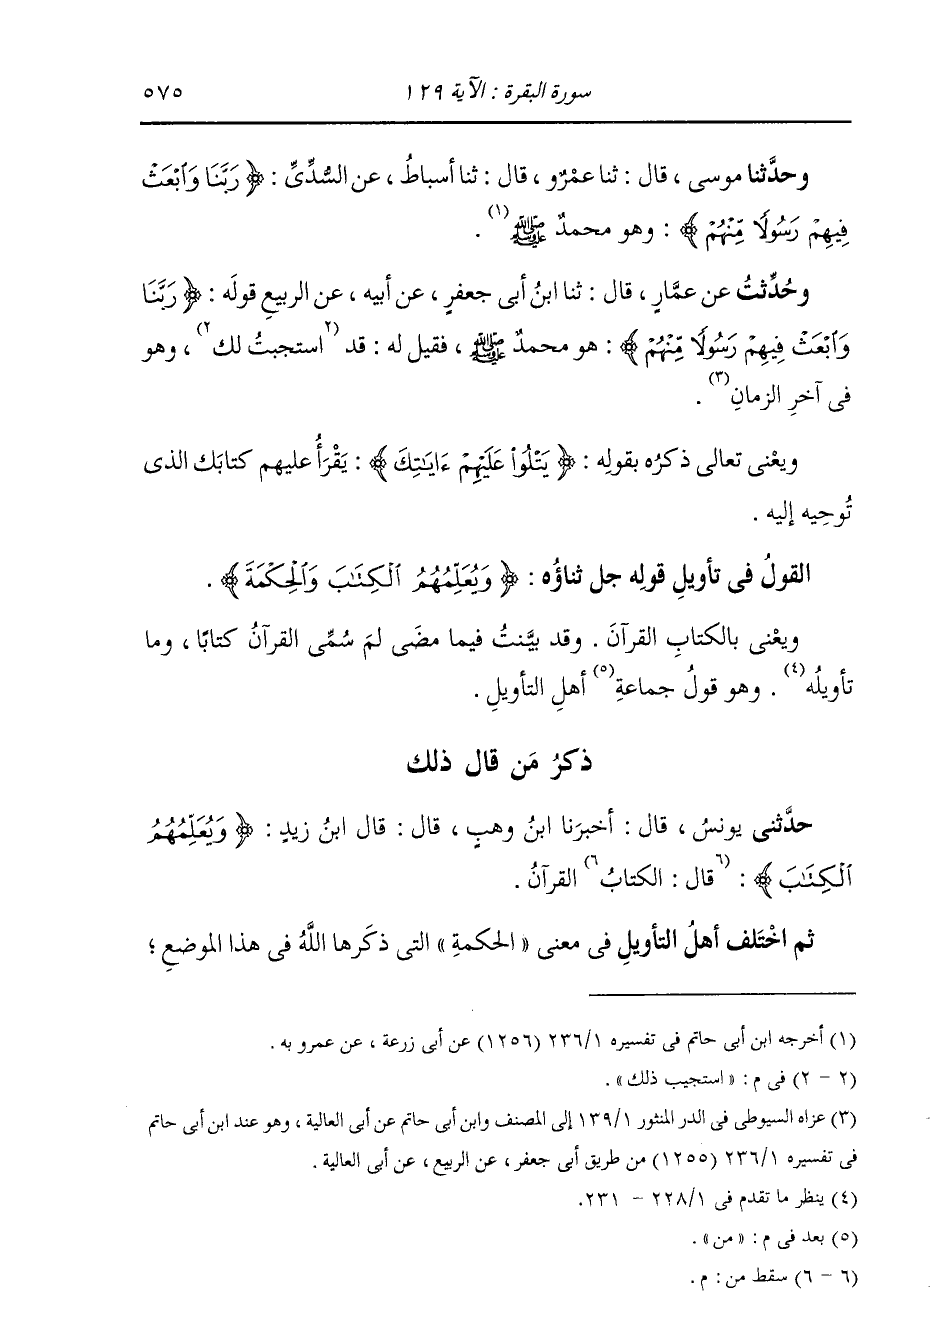 سورة البقرة : الآية ١٢٩ ٥٧٥
وحدَّثنا موسى ، قال : ثنا عمْرٌو ، قال : ثنا أسباطُ ، عن السُّدِّىِّ : ﴿ رَبَّنَا وَٱبْعَثْ
فِيهِمْ رَسُولًا مِّنْهُمْ ﴾ : وهو محمدٌ ﷺ (١) .
وحُدِّثتُ عن عمَّارٍ ، قال : ثنا ابنُ أبى جعفرٍ ، عن أبيه ، عن الربيعِ قولَه : ﴿ رَبَّنَا
وَٱبْعَثْ فِيهِمْ رَسُولًا مِّنْهُمْ ﴾ : هو محمدٌ ﷺ ، فقيل له : قد (٢ استجبتُ لك ٢) ، وهو
فى آخرِ الزمانِ (٣) .
ويعْنى تعالى ذكرُه بقولِه : ﴿ يَتْلُوا۟ عَلَيْهِمْ ءَايَـٰتِكَ ﴾ : يَقْرَأُ عليهم كتابَك الذى
تُوحِيه إليه .
القولُ فى تأويلِ قولِه جل ثناؤُه : ﴿ وَيُعَلِّمُهُمُ ٱلْكِتَـٰبَ وَٱلْحِكْمَةَ ﴾ .
ويعْنى بالكتابِ القرآنَ . وقد بيَّنتُ فيما مضَى لمَ سُمِّى القرآنُ كتابًا ، وما
تأويلُه (٤) . وهو قولُ جماعةِ (٥) أهلِ التأويلِ .
ذكرُ مَن قال ذلك
حدَّثنى يونسُ ، قال : أخبرَنا ابنُ وهبٍ ، قال : قال ابنُ زيدٍ : ﴿ وَيُعَلِّمُهُمُ
ٱلْكِتَـٰبَ ﴾ : (٦ قال : الكتابُ ٦) القرآنُ .
ثم اخْتَلف أهلُ التأويلِ فى معنى « الحكمةِ » التى ذكَرها اللَّهُ فى هذا الموضعِ ؛
(١) أخرجه ابن أبى حاتم فى تفسيره ٢٣٦/١ (١٢٥٦) عن أبى زرعة ، عن عمرو به .
(٢ - ٢) فى م : « استجيب ذلك » .
(٣) عزاه السيوطى فى الدر المنثور ١٣٩/١ إلى المصنف وابن أبى حاتم عن أبى العالية ، وهو عند ابن أبى حاتم
فى تفسيره ٢٣٦/١ (١٢٥٥) من طريق أبى جعفر ، عن الربيع ، عن أبى العالية .
(٤) ينظر ما تقدم فى ٢٢٨/١ - ٢٣١.
(٥) بعد فى م : « من » .
(٦ - ٦) سقط من : م .